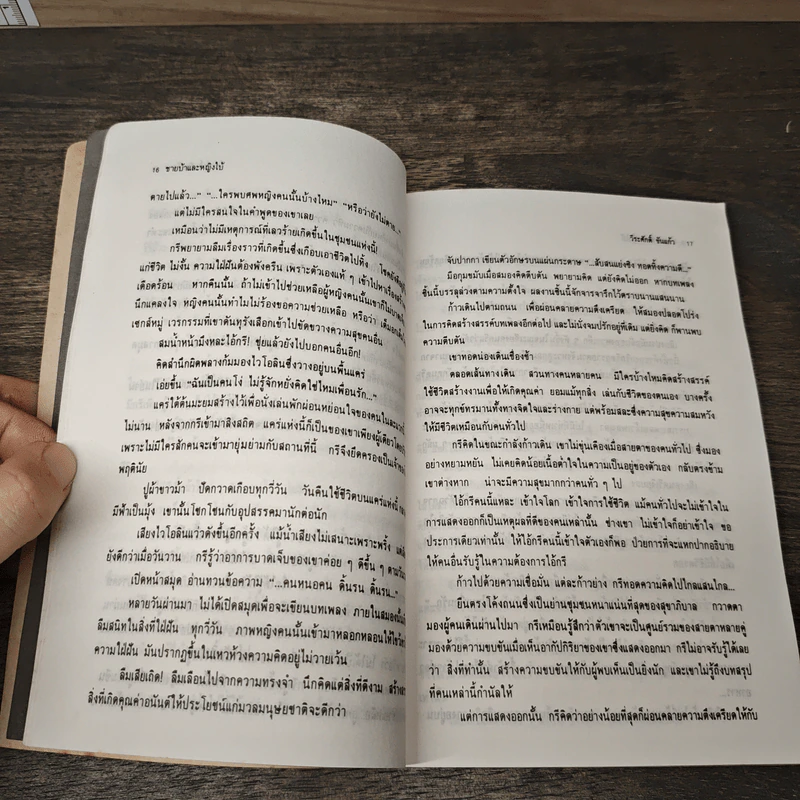 16 ชายบ้าและหญิงใบ้
ตายไปแล้ว..." "...ใครพบศพหญิงคนนั้นบ้างไหม" "หรือว่ายังไม่ตาย..."
แต่ไม่มีใครสนใจในคำพูดของเขาเลย
เหมือนว่าไม่มีเหตุการณ์ที่เลวร้ายเกิดขึ้นในชุมชนแห่งนี้!
กรีพยายามลืมเรื่องราวที่เกิดขึ้นซึ่งเกือบเอาชีวิตไปทิ้ง
แก่ชีวิต ไม่งั้น ความใฝ่ฝันต้องพังครืน เพราะตัวเองแท้ ๆ เข้าไปหาเรื่อง
เดือดร้อน หากคืนนั้น ถ้าไม่เข้าไปช่วยเหลือผู้หญิงคนนั้นเขาก็ไม่
นึกแคลงใจ หญิงคนนั้นทำไมไม่ร้องขอความช่วยเหลือ หรือว่า
เซกส์หมู่ เวรกรรมที่เขาดันทุรังเสือกเข้าไปขัดขวางความสุขคนอื่น
สมน้ำหน้ามึงทละไอ้กรี! ซุ่ยแล้วยังไปบอกคนอื่นอีก!
คิดสำนึกผิดพลางก้มมองไวโอลินซึ่งวางอยู่บนพื้นแคร่
เอ่ยขึ้น "ฉันเป็นคนโง่ ไม่รู้จักหยั่งคิดใช่ไหมเพื่อนรัก..."
แคร่ใต้ต้นมะยมสร้างไว้เพื่อนั่งเล่นพักผ่อนหย่อนใจของคนใน
ไม่นาน หลังจากกรีเข้ามาสิงสถิต แคร่แห่งนี้ก็เป็นของเขาเพียงผู้เดียว
เพราะไม่มีใครสักคนจะเข้ามายุ่มย่ามกับสถานที่นี้ กรีจึงยึดครองเป็น
พฤตินัย
ปูผ้าขาวม้า ปัดกวาดเกือบทุกวี่วัน วันคืนใช้ชีวิตบนแคร่แห่งนี้
มีฟ้าเป็นมุ้ง เขานั้นโชกโชนกับอุปสรรคมานักต่อนัก
เสียงไวโอลินแว่วดังขึ้นอีกครั้ง แม้น้ำเสียงไม่เสนาะเพราะพริ้ง
ยังดีกว่าเมื่อวันวาน กรีรู้ว่าอาการบาดเจ็บของเขาค่อย ๆ ดีขึ้น ๆ
เปิดหน้าสมุด อ่านทวนข้อความ "...คนหนอคน ดิ้นรน ดิ้นรน..."
หลายวันผ่านมา ไม่ได้เปิดสมุดเพื่อจะเขียนบทเพลง ภายในสมอง
ลืมสนิทในสิ่งที่ใฝ่ฝัน ทุกวี่วัน ภาพหญิงคนนั้นเข้ามาหลอกหลอนให้
ความใฝ่ฝัน มันปรากฏขึ้นในเหวห้วงความคิดอยู่ไม่วายเว้น
ลืมเสียเถิด! ลืมเลือนไปจากความทรงจำ นึกคิดแต่สิ่งที่ดีงาม
สิ่งที่เกิดคุณค่าอนันต์ให้ประโยชน์แก่มวลมนุษยชาติจะดีกว่า
วีระศักดิ์ จันแก้ว 17
จับปากกา เขียนตัวอักษรบนแผ่นกระดาษ "...สับสนแย่งชิง ทอดทิ้งความดี..."
มือกุมขมับเมื่อสมองคิดตีบตัน พยายามคิด แต่ยังคิดไม่ออก หากบทเพลง
ชิ้นนี้บรรลุล่วงตามความตั้งใจ ผลงานชิ้นนี้จักจารจารึกไว้ตราบนานแสนนาน
ก้าวเดินไปตามถนน เพื่อผ่อนคลายความตึงเครียด ให้สมองปลอดโปร่ง
ในการคิดสร้างสรรค์บทเพลงอีกต่อไป และไม่นั่งจมปรักอยู่ที่เดิม แต่ยิ่งคิด ก็พานพบ
ความตีบตัน
เขาทอดน่องเดินเชื่องช้า
ตลอดเส้นทางเดิน สวนทางคนหลายคน มีใครบ้างไหมคิดสร้างสรรค์
ใช้ชีวิตสร้างงานเพื่อให้เกิดคุณค่า ยอมแม้ทุกสิ่ง เล่นกับชีวิตของตนเอง บางครั้ง
อาจจะทุกข์ทรมานทั้งทางจิตใจและร่างกาย แต่พร้อมสละซึ่งความสุขความสมหวัง
ให้มีชีวิตเหมือนกับคนทั่วไป
กรีคิดในขณะกำลังก้าวเดิน เขาไม่ขุ่นเคืองเมื่อสายตาของคนทั่วไป ซึ่งมอง
อย่างหยามหยัน ไม่เคยคิดน้อยเนื้อต่ำใจในความเป็นอยู่ของตัวเอง กลับตรงข้าม
เขาต่างหาก น่าจะมีความสุขมากกว่าคนทั่ว ๆ ไป
ไอ้กรีคนนี้แหละ เข้าใจโลก เข้าใจการใช้ชีวิต แม้คนทั่วไปจะไม่เข้าใจใน
การแสดงออกก็เป็นเหตุผลที่ดีของคนเหล่านั้น ช่างเขา ไม่เข้าใจก็อย่าเข้าใจ ขอ
ประการเดียวเท่านั้น ให้ไอ้กรีคนนี้เข้าใจตัวเองก็พอ ป่วยการที่จะแหกปากอธิบาย
ให้คนอื่นรับรู้ในความต้องการไอ้กรี
ก้าวไปด้วยความเชื่อมั่น แต่ละก้าวย่าง กรีทอดความคิดไปไกลแสนไกล...
ยืนตรงโค้งถนนซึ่งเป็นย่านชุมชนหนาแน่นที่สุดของสุขาภิบาล กวาดตา
มองผู้คนเดินผ่านไปมา กรีเหมือนรู้สึกว่าตัวเขาจะเป็นศูนย์รวมของสายตาหลายคู่
มองด้วยความขบขันเมื่อเห็นอากัปกิริยาของเขาซึ่งแสดงออกมา กรีไม่อาจรับรู้ได้เลย
ว่า สิ่งที่ทำนั้น สร้างความขบขันให้กับผู้พบเห็นเป็นยิ่งนัก และเขาไม่รู้ถึงบทสรุป
ที่คนเหล่านี้กำนัลให้
แต่การแสดงออกนั้น กรีคิดว่าอย่างน้อยที่สุดก็ผ่อนคลายความตึงเครียดให้กับ